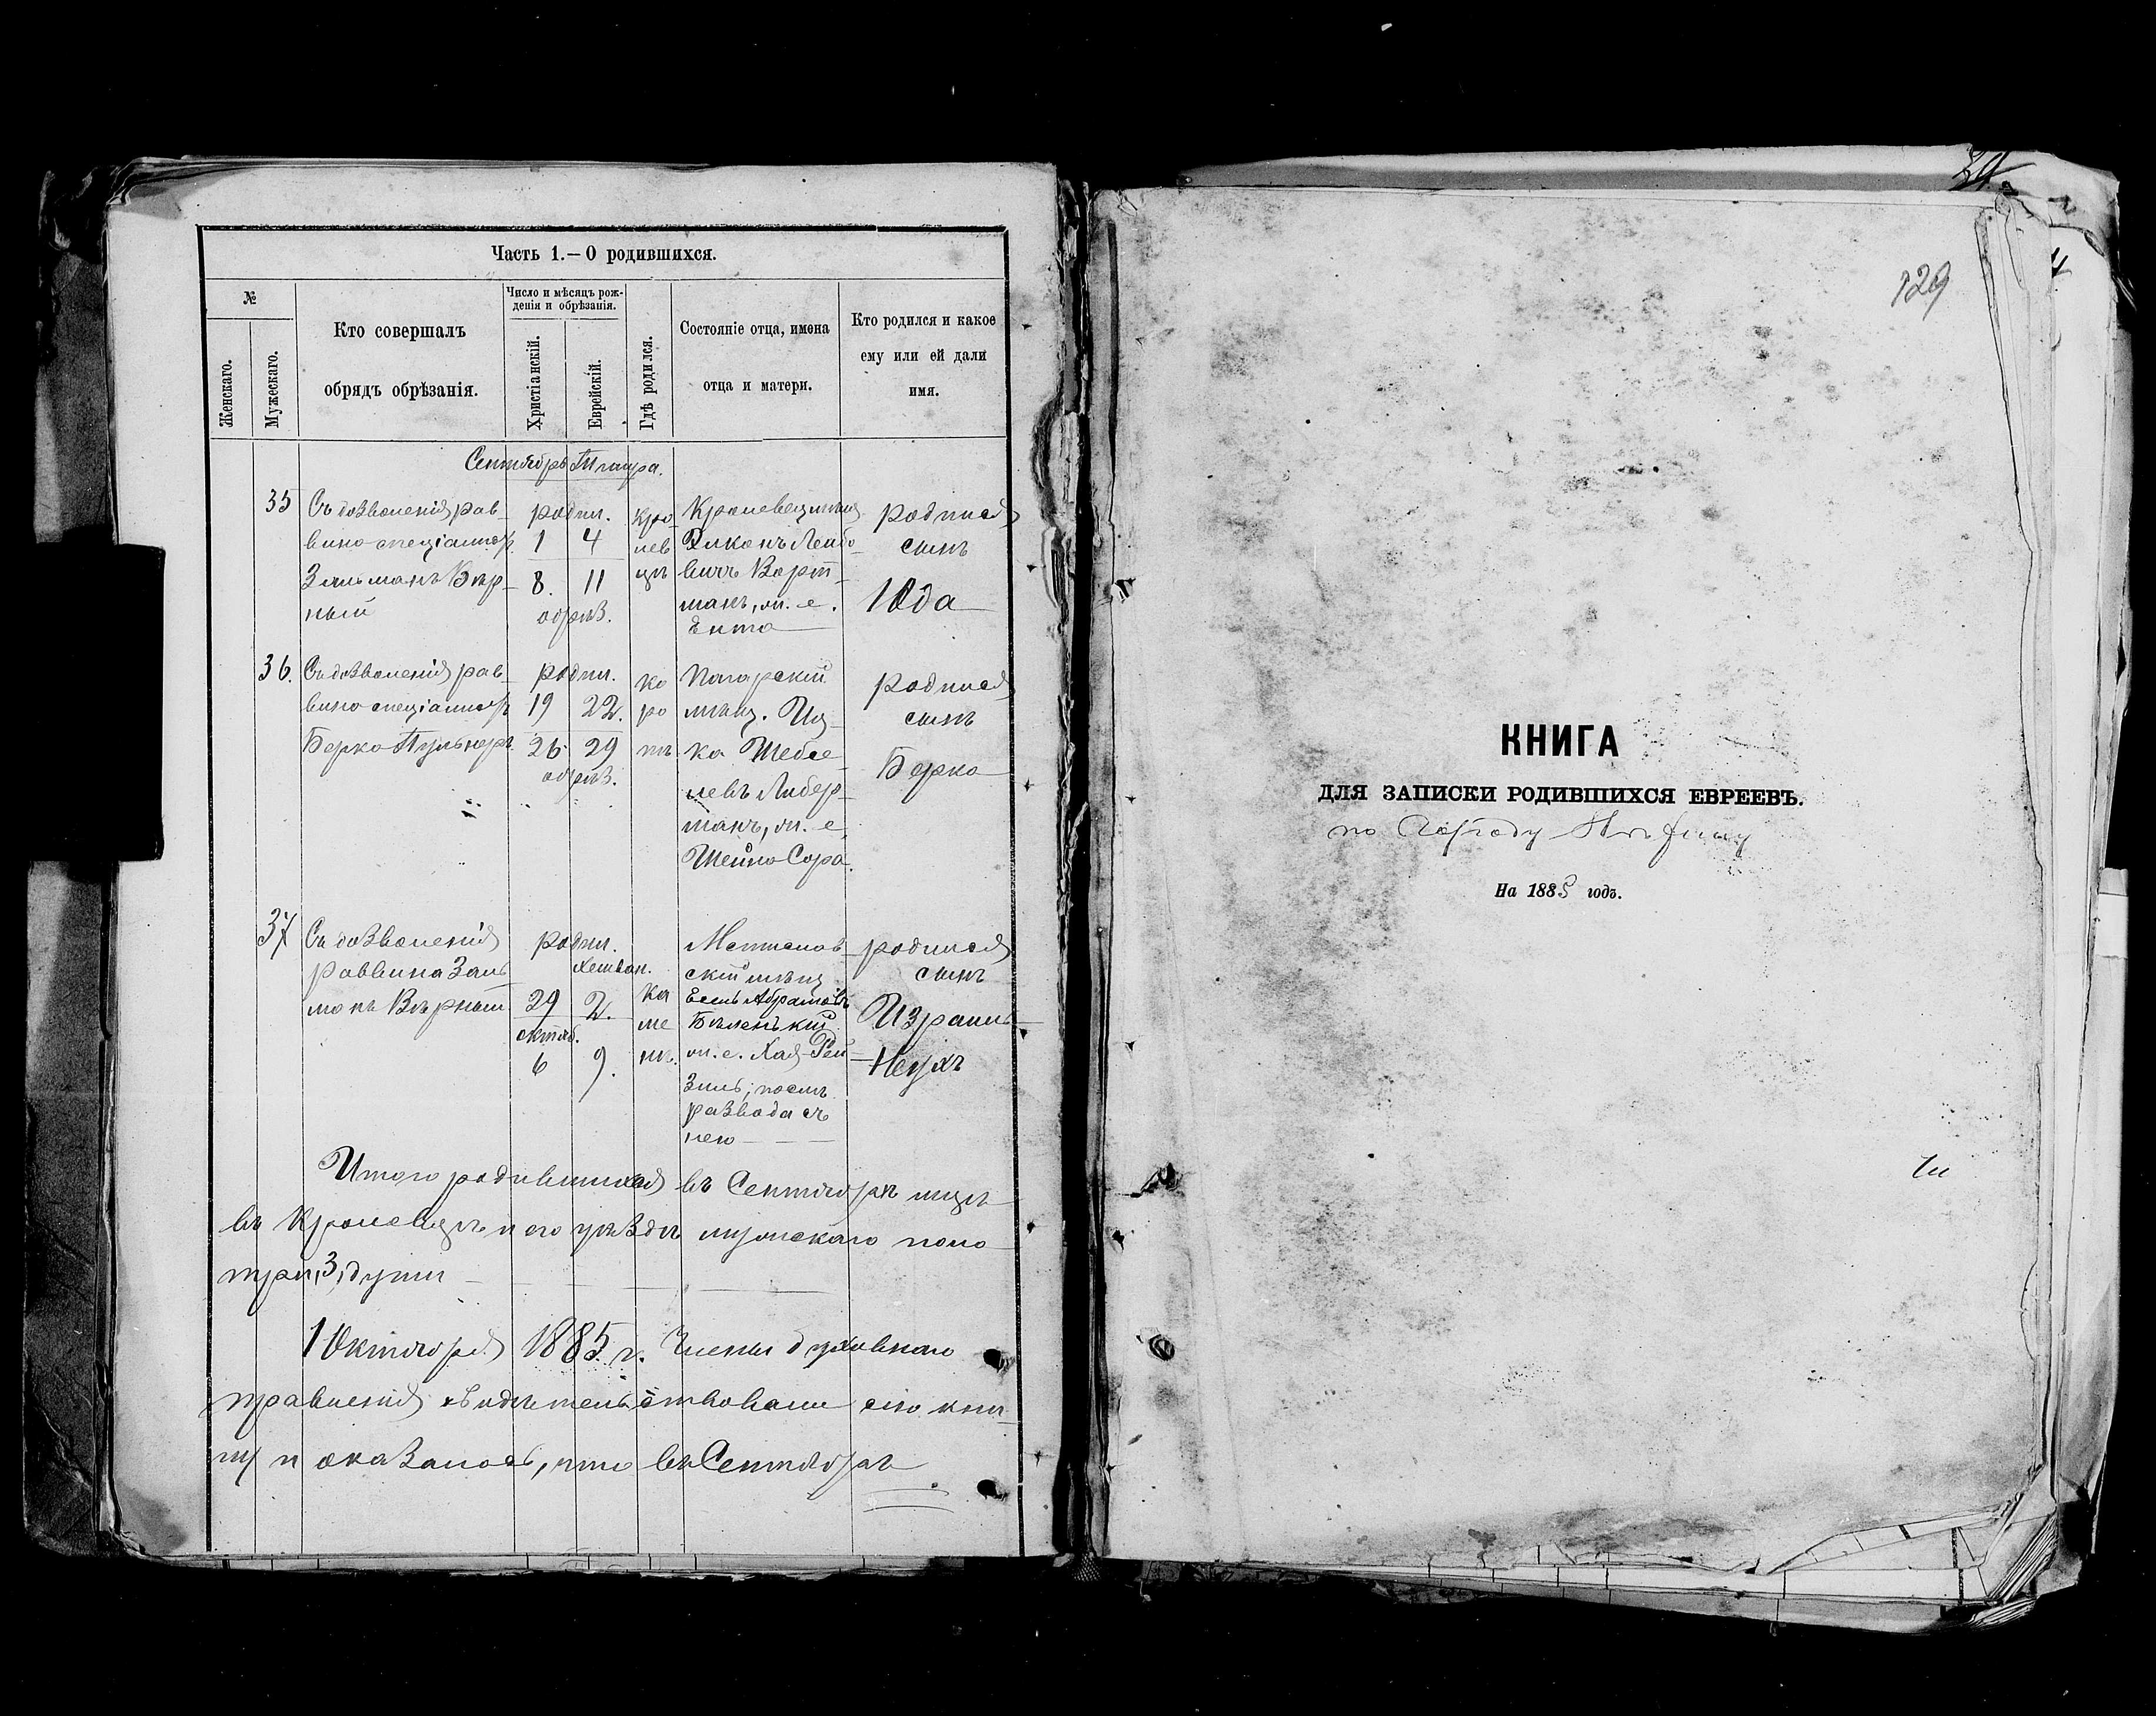 Часть 1.—О родившихся.
№
Женскаго.
Мужескаго.
Кто совершалъ
обрядъ обрѣзанія.
Число и мѣсяцъ рож-
денія и обрѣзанія.
Христіанскій.
Еврейскій.
Гдѣ родился.
Состояніе отца, имена
отца и матери.
Кто родился и какое
ему или ей дали
имя.
Сентябрь Тишра.
35
Съ дозволенія рав-
вина спеціалистъ
Зальманъ Вѣр-
ный
родил.
1 4
8. 11
обрѣз.
Кро-
лев
цѣ
Кролевецкий
Элконъ Лейбо-
вичъ Ворт-
манъ, ж. е.
Ента
родился
сынъ
Юда
36.
Съ дозволенія рав-
вина спеціалистъ
Берко Пульнеръ
родил.
19 22.
26 29
обрѣз.
Ко
ро
пѣ
Погарскій
мѣщ. Иц-
ка Шебсе-
левъ Либер-
манъ, ж. е.
Шейна Сора.
родился
сынъ
Берка
37
Съ дозволенія
раввина Заль
манъ Вѣрный
родил.
Хешван.
29 2.
октяб.
6 9.
скій мѣщ.
Абрамовъ
Бѣленькій
ж. е. Хая-Рей
зиль, послѣ
развода съ
нею
родился
сынъ
Израиль-
Неухъ
Итого родившихся въ Сентябрѣ мцѣ
въ Кролевцѣ и его уѣздѣ мужскаго пола
три, 3, души
1 Октября 1885 г. Члены духовнаго
правленія свидѣтельствовали сію кни-
гу и оказалось, что въ Сентябрѣ
129
КНИГА
ДЛЯ ЗАПИСКИ РОДИВШИХСЯ ЕВРЕЕВЪ.
по городу
На 1885 годъ.